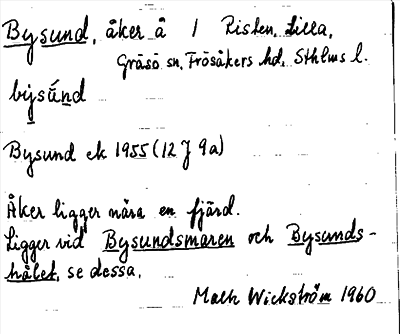 Bysund, åker å 1 Risten, Lilla,
Gräsö sn, Frösåkers hd, Sthlms l.
by̱sú̱nd
Bysund ek 1955 (12 J 9a)
Åker ligger nära en fjärd.
Ligger vid Bysundsmaren och Bysunds-
hålet, se dessa.
Math Wickström 1960